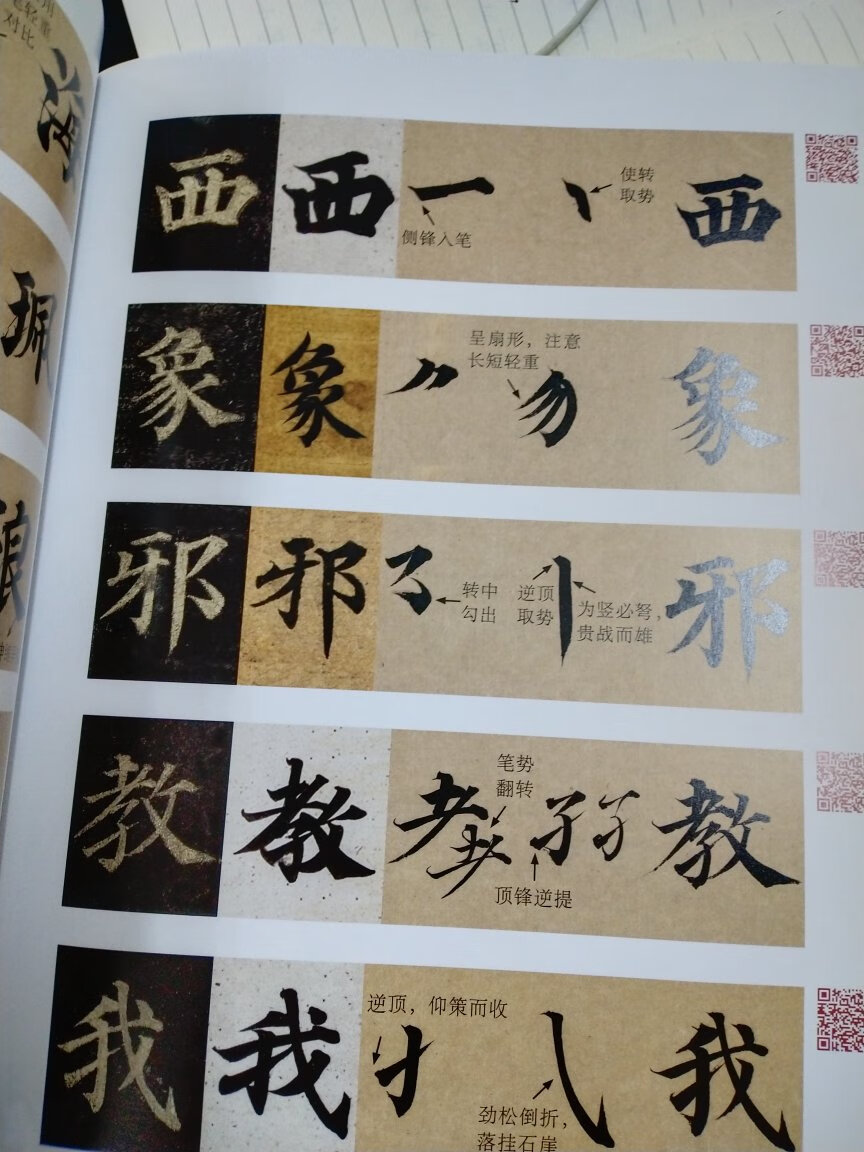 轻重
对比
海
珮
西 西 西
侧锋入笔
使转
取势
象 象 象
呈扇形，注意
长短轻重
邪 邪 邪
转中
勾出
逆顶
取势
为竖必弩，
贵战而雄
教 教 教
笔势
翻转
顶锋逆提
我 我 我
逆顶，仰策而收
劲松倒折，
落挂石崖